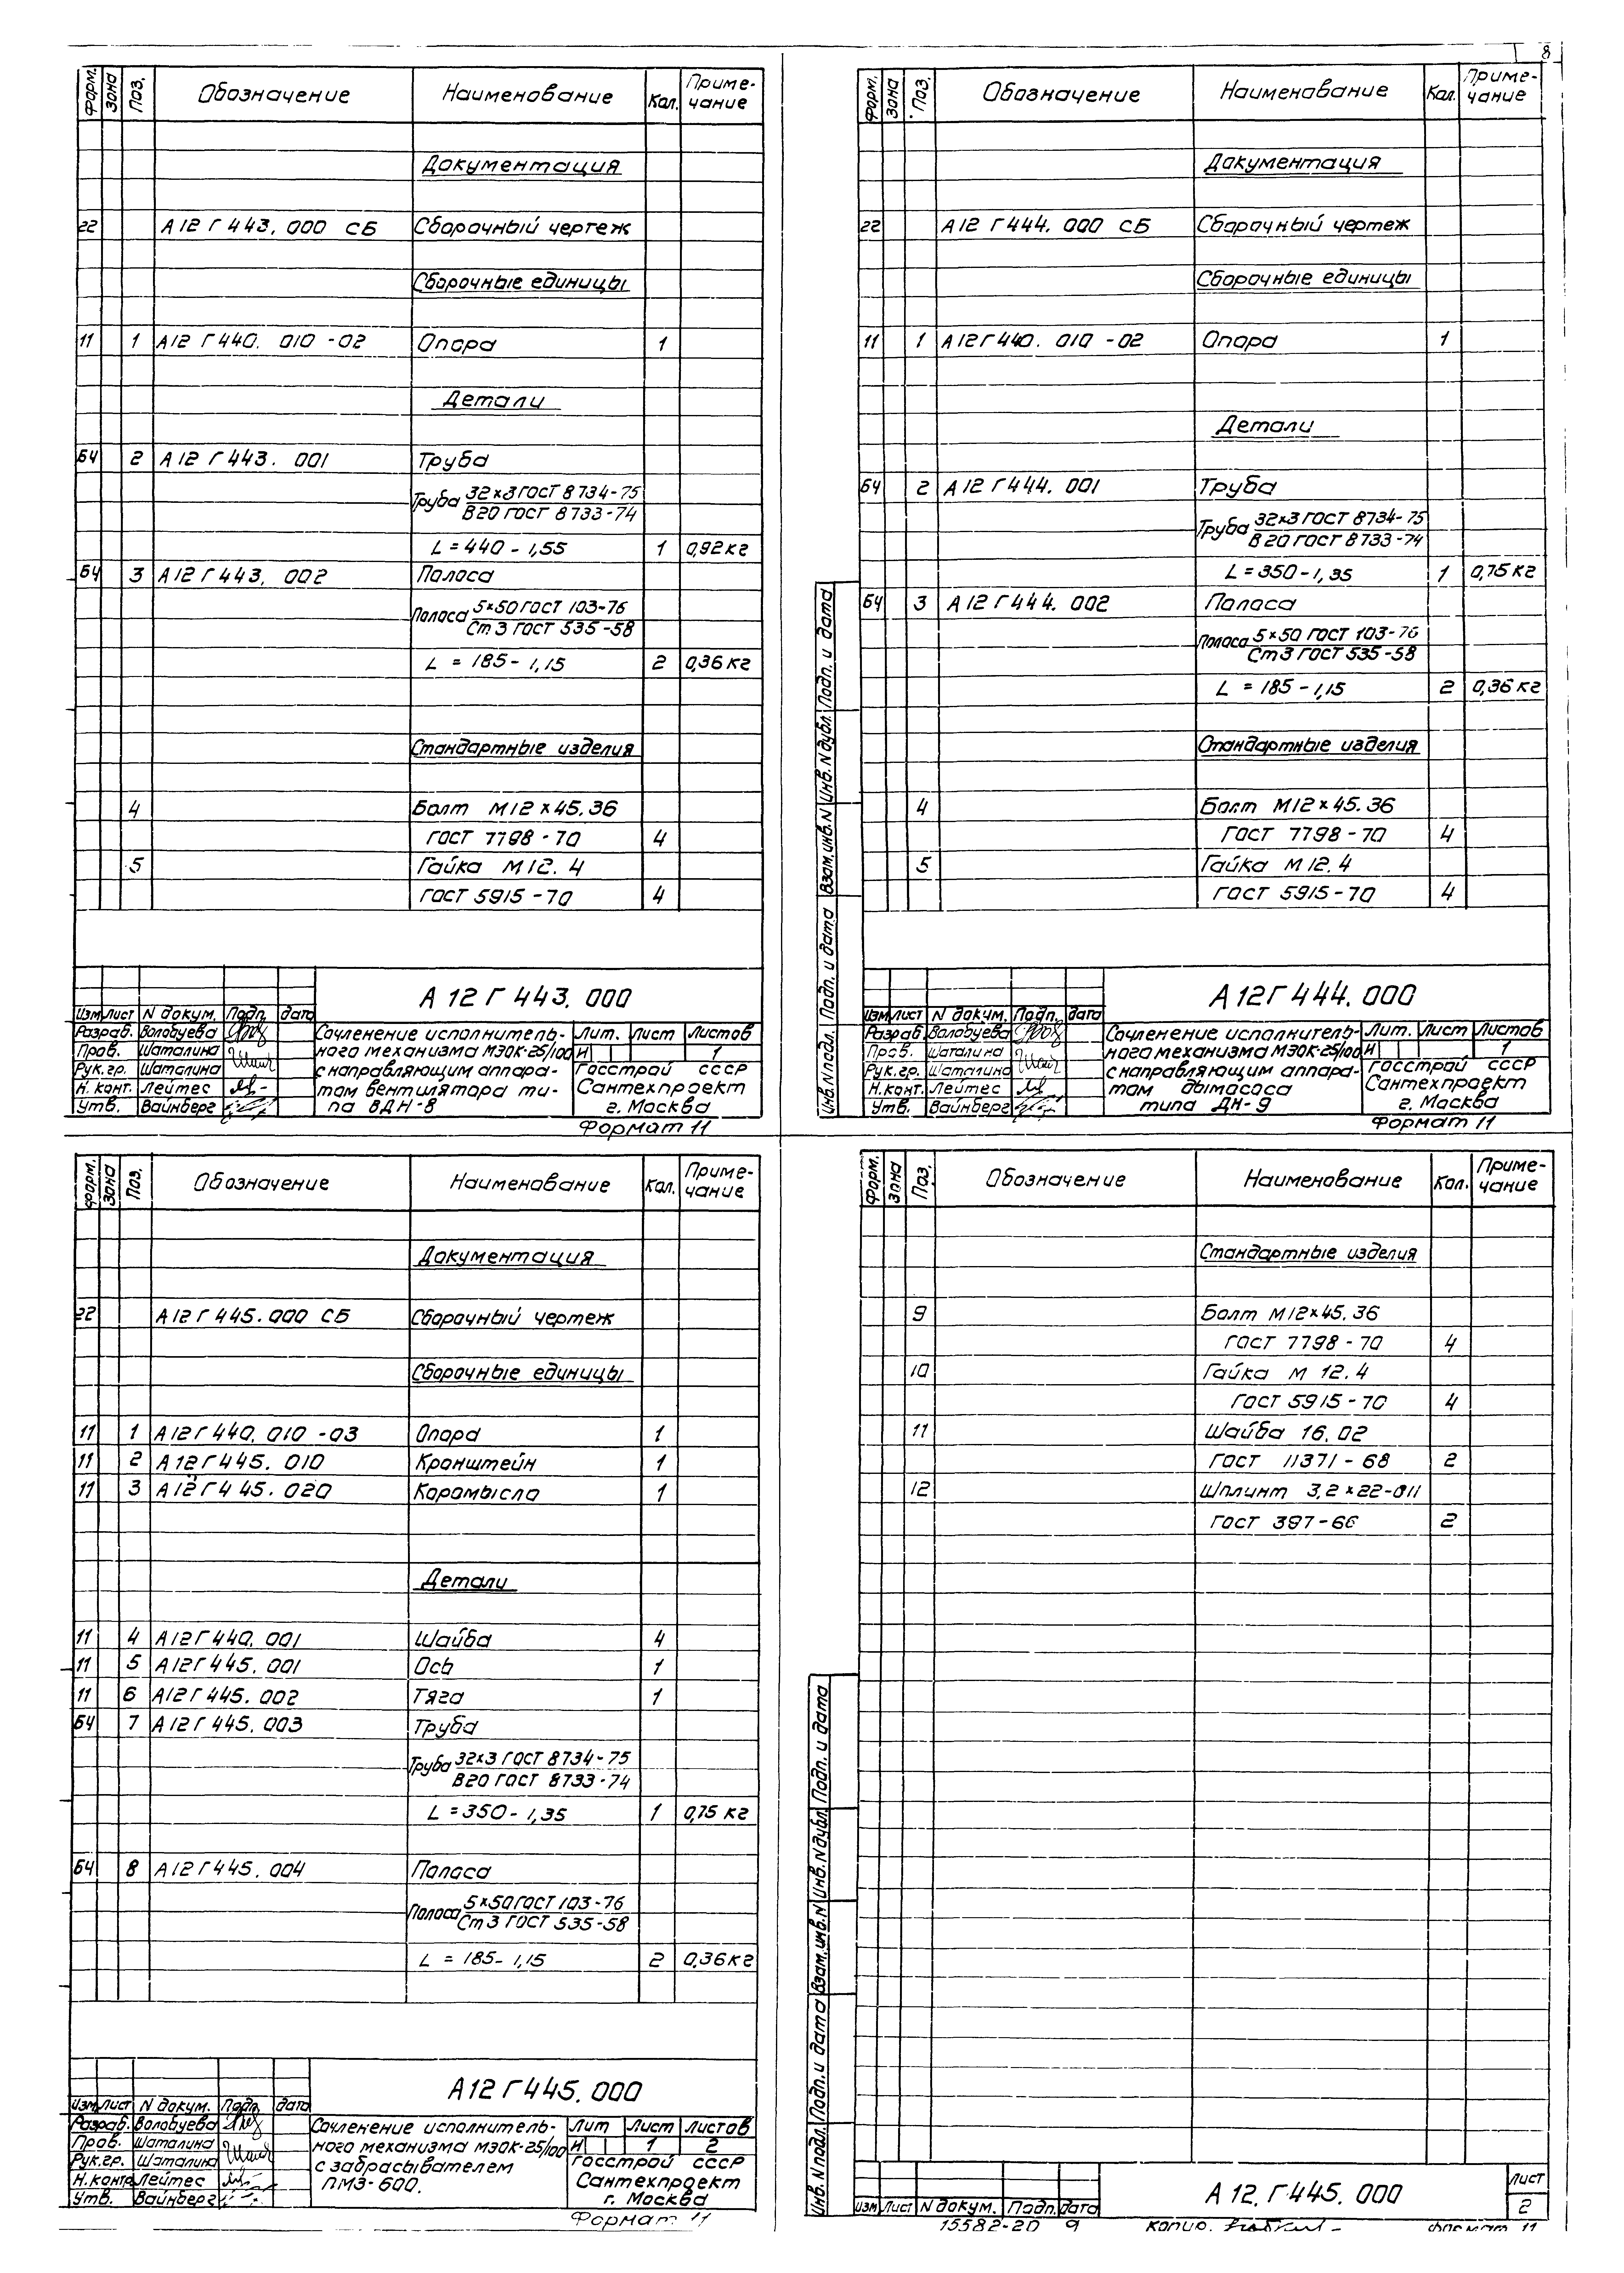 8
Форм. Зона Поз. Обозначение Наименование Кол. Приме-
чание
Документация
22 А12Г443.000 СБ Сборочный чертеж
Сборочные единицы
11 1 А12Г440.010-02 Опора 1
Детали
БЧ 2 А12Г443.001 Труба
Труба 32×3 ГОСТ 8734-75
В20 ГОСТ 8733-74
L=440-1,55 1 0,92кг
БЧ 3 А12Г443.002 Полоса
Полоса 5×50 ГОСТ 103-76
Ст3 ГОСТ 535-58
L=185-1,15 2 0,36кг
Стандартные изделия
4 Болт М12×45.36
ГОСТ 7798-70 4
5 Гайка М12.4
ГОСТ 5915-70 4
А12Г443.000
Изм Лист N докум. Подп. дата
Разраб. Волобуева
Пров. Шаталина
Рук.гр. Шаталина
Н.конт. Лейтес
Утв. Вайнберг
Сочленение исполнитель-
ного механизма МЭОК-25/100
с направляющим аппара-
том вентилятора ти-
па ВДН-8
Лит. Лист Листов
И 1
Госстрой СССР
Сантехпроект
г. Москва
Формат 11
Форм. Зона Поз. Обозначение Наименование Кол. Приме-
чание
Документация
22 А12Г444.000 СБ Сборочный чертеж
Сборочные единицы
11 1 А12Г440.010-02 Опора 1
Детали
БЧ 2 А12Г444.001 Труба
Труба 32×3 ГОСТ 8734-75
В20 ГОСТ 8733-74
L=350-1,35 1 0,75кг
БЧ 3 А12Г444.002 Полоса
Полоса 5×50 ГОСТ 103-76
Ст3 ГОСТ 535-58
L=185-1,15 2 0,36кг
Стандартные изделия
4 Болт М12×45.36
ГОСТ 7798-70 4
5 Гайка М12.4
ГОСТ 5915-70 4
Инв.N подл. Подп. и дата Взам.инв.N Инв.N дубл. Подп. и дата
А12Г444.000
Изм Лист N докум. Подп. дата
Разраб. Волобуева
Пров. Шаталина
Рук.гр. Шаталина
Н.конт. Лейтес
Утв. Вайнберг
Сочленение исполнитель-
ного механизма МЭОК-25/100
с направляющим аппара-
том дымососа
типа ДН-9
Лит. Лист Листов
И 1
Госстрой СССР
Сантехпроект
г. Москва
Формат 11
Форм. Зона Поз. Обозначение Наименование Кол. Приме-
чание
Документация
22 А12Г445.000 СБ Сборочный чертеж
Сборочные единицы
11 1 А12Г440.010-03 Опора 1
11 2 А12Г445.010 Кронштейн 1
11 3 А12Г445.020 Коромысло 1
Детали
11 4 А12Г440.001 Шайба 4
11 5 А12Г445.001 Ось 1
11 6 А12Г445.002 Тяга 1
БЧ 7 А12Г445.003 Труба
Труба 32×3 ГОСТ 8734-75
В20 ГОСТ 8733-74
L=350-1,35 1 0,75 кг
БЧ 8 А12Г445.004 Полоса
Полоса 5×50 ГОСТ 103-76
Ст3 ГОСТ 535-58
L=185-1,15 2 0,36кг
А12Г445.000
Изм Лист N докум. Подп. дата
Разраб. Волобуева
Пров. Шаталина
Рук.гр. Шаталина
Н.контр Лейтес
Утв. Вайнберг
Сочленение исполнитель-
ного механизма МЭОК-25/100
с забрасывателем
ПМЗ-600.
Лит Лист Листов
И 1 2
Госстрой СССР
Сантехпроект
г. Москва
Формат 11
Форм. Зона Поз. Обозначение Наименование Кол. Приме-
чание
Стандартные изделия
9 Болт М12×45.36
ГОСТ 7798-70 4
10 Гайка М 12.4
ГОСТ 5915-70 4
11 Шайба 16.02
ГОСТ 11371-68 2
12 Шплинт 3,2×22-011
ГОСТ 397-66 2
Инв.N подл. Подп. и дата Взам.инв.N Инв.N дубл. Подп. и дата
Изм Лист N докум. Подп. дата
А12.Г445.000
Лист
2
15582-20 9 Копир. Формат 11